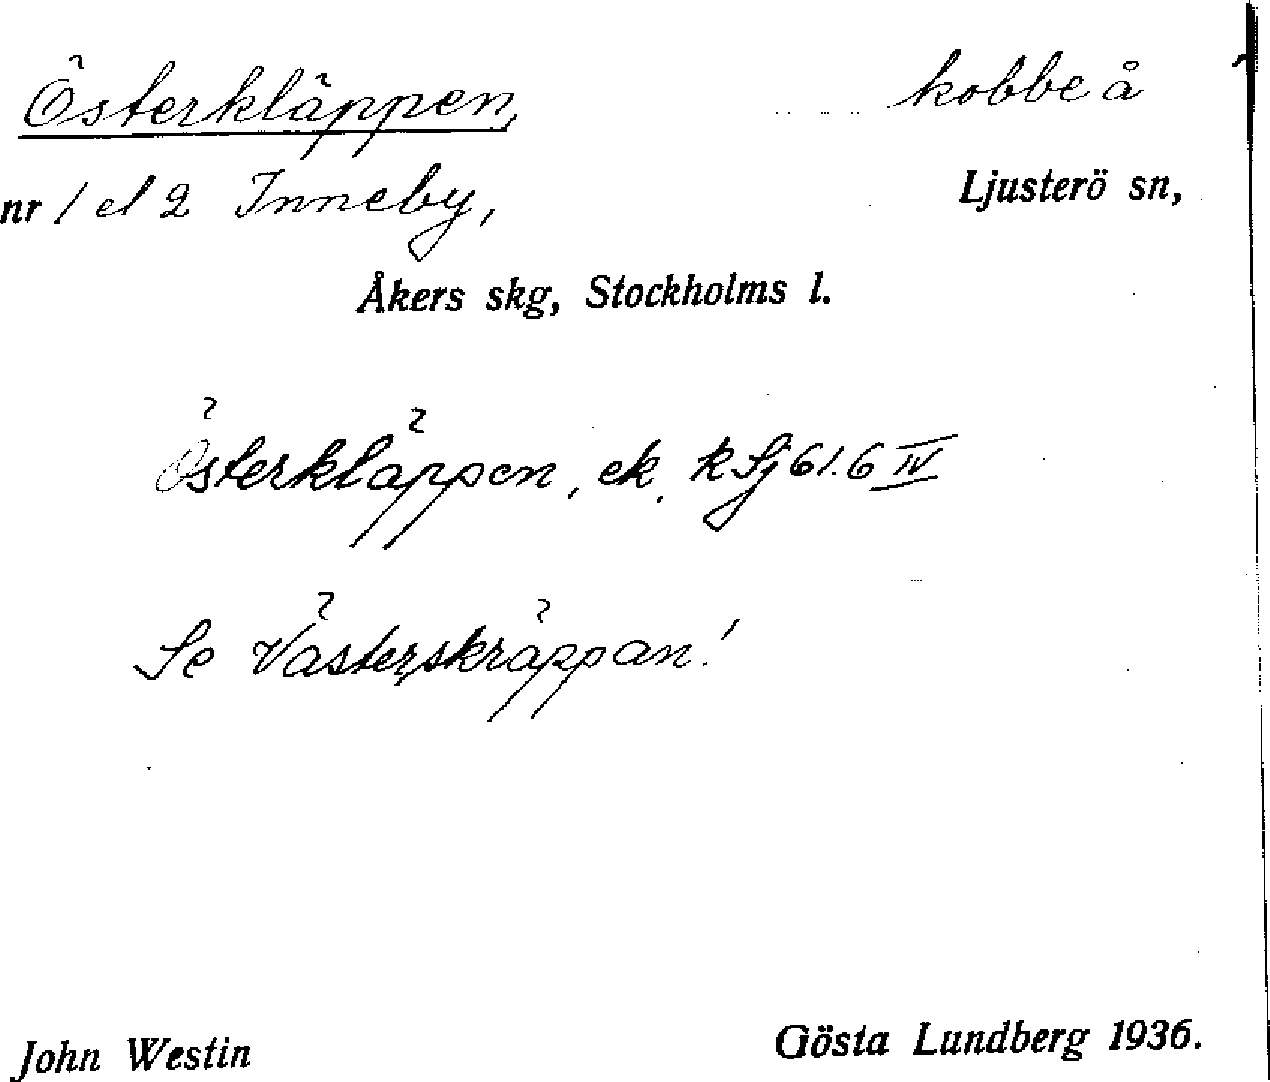 Österkläppen, kobbe å
nr 1 el 2 Inneby, Ljusterö sn,
Åkers skg, Stockholms l.
Österkläppen, ek. k Sj 61.6 IV
Se Västerskräppan!
John Westin Gösta Lundberg 1936.